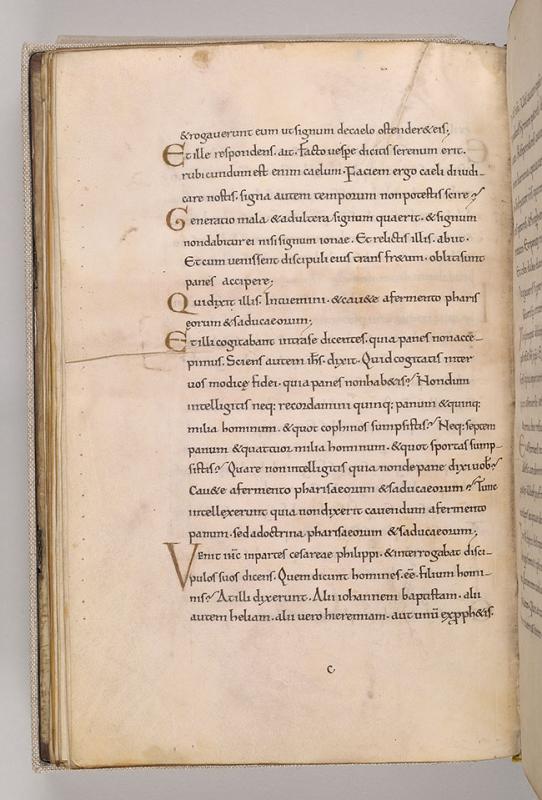 &rogauerunt eum ut signum decaelo ostender&eis;
Et ille respondens. ait. Facto uespe dicitis serenum erit.
rubicundum est enim caelum. Faciem ergo caeli diiudi-
care nostis. signa autem temporum non potestis scire?
Generatio mala &adultera signum quaerit. &signum
non dabitur ei nisi signum ionae. Et relictis illis. abiit.
Et cum uenissent discipuli eius trans fr&um. obliti sunt
panes accipere;
Qui dixit illis. Intuemini. &cau&e afermento pharis
eorum &saducaeorum;
Et illi cogitabant intra se dicentes. quia panes non acce-
pimus. Sciens autem ihs. dixit. Quid cogitatis inter
uos modice fidei. quia panes non hab&is? Nondum
intelligitis neq: recordamini quinq: panum &quinq:
milia hominum. &quot cophinos sumpsistis? Neq: septem
panum &quattuor milia hominum. &quot sportas sump-
sistis? Quare non intelligitis quia non de pane dixi uob?
Cau&e afermento pharisaeorum &saducaeorum? Tunc
intellexerunt quia non dixerit cauendum afermento
panum. sed adoctrina pharisaeorum &saducaeorum;
Venit in partes cesareae philippi. &interrogabat disci-
pulos suos dicens. Quem dicunt homines. eē. filium homi-
nis? At illi dixerunt. Alii iohannem baptistam. alii
autem heliam. alii uero hieremiam. aut unū exproph&is.
c